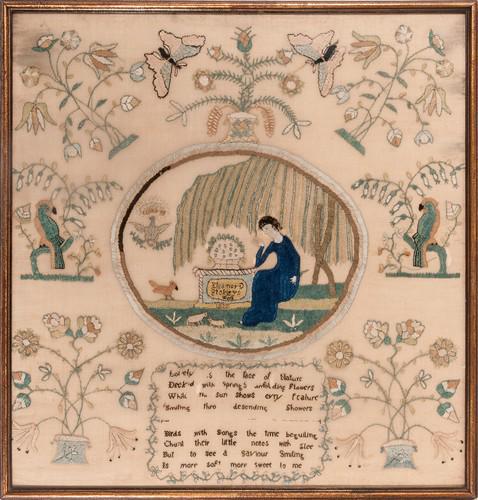 Eleanor D
Lovely is the face of Nature
Deck'd with Springs unfolding Flowers
While the sun shows evry Feature
Smiling thro desending Showers
Birds with Songs the time beguiling
Chant their little notes with Glee
But to see a Saviour Smiling
Is more soft more sweet to me